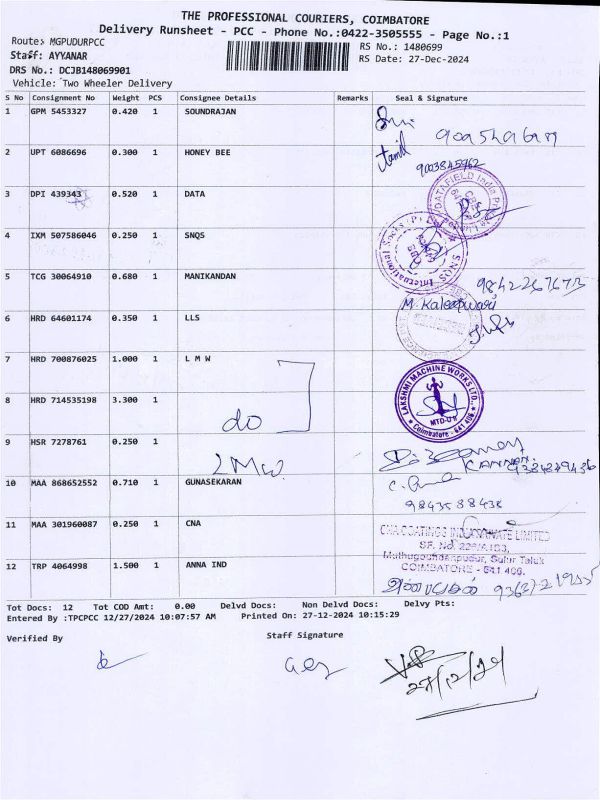 THE PROFESSIONAL COURIERS, COIMBATORE
Delivery Runsheet - PCC - Phone No.:0422-3505555 - Page No.:1
Route: MGPUDURPCC
RS No.: 1480699
Staff: AYYANAR
RS Date: 27-Dec-2024
DRS No.: DCJB148069901
Vehicle: Two Wheeler Delivery
S No Consignment No Weight PCS Consignee Details Remarks Seal & Signature
1 GPM 5453327 0.420 1 SOUNDRAJAN
2 UPT 6086696 0.300 1 HONEY BEE
9003845962
3 DPI 439343 0.520 1 DATA
DATAFIELD India
4 IXM 507586046 0.250 1 SNQS
SNQS International Socks
5 TCG 30064910 0.680 1 MANIKANDAN
9842267673
M. Kaleeswari
6 HRD 64601174 0.350 1 LLS
7 HRD 700876025 1.000 1 L M W
LAKSHMI MACHINE WORKS LTD.,
8 HRD 714535198 3.300 1
do
MTD-U II
Coimbatore - 641 406
9 HSR 7278761 0.250 1
LMW
KANNAN
10 MAA 868652552 0.710 1 GUNASEKARAN
9843588438
11 MAA 301960087 0.250 1 CNA
CNA COATINGS INDIA PRIVATE LIMITED
SF. No. 229/A1B3,
Muthugoundenpudur, Sulur Taluk
COIMBATORE - 641 406.
12 TRP 4064998 1.500 1 ANNA IND
Tot Docs: 12 Tot COD Amt: 0.00 Delvd Docs: Non Delvd Docs: Delvy Pts:
Entered By :TPCPCC 12/27/2024 10:07:57 AM Printed On: 27-12-2024 10:15:29
Verified By
Staff Signature
27/12/24